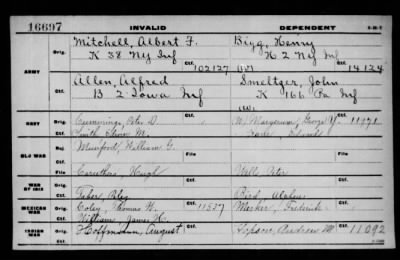 16697 INVALID DEPENDENT
ARMY
Orig. Mitchell, Albert F. Bigg, Henry
K 38 Ny Inf Ctf. 102127 H 2 Ny Inf Ctf. 14124
Orig. Allen, Alfred Smeltzer, John
B 2 Iowa Inf Ctf. K 166 Pa Inf Ctf.
NAVY
Orig. Cummings, D. W. George 11971
Ctf. Smith, M.
OLD WAR
Rej. Munford, William G. File
Ctf. Caruthers, Hugh File Wells, Peter
WAR OF 1812
Orig.
Ctf. Tabor, Bird,
MEXICAN WAR
Orig. Coley, Thomas W. Ctf. 11527 Frederick Ctf.
Ctf. William, James H.
INDIAN WAR
Orig. Hoffmann, August Ctf. Andrew M Ctf. 11092